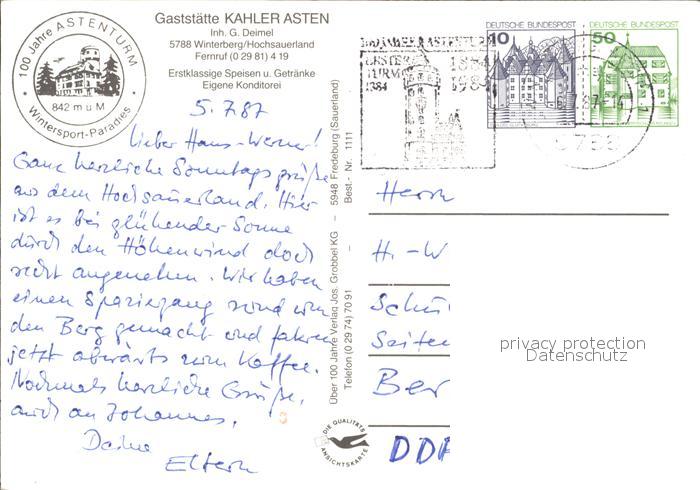 100 Jahre ASTENTURM
842 m ü M
Wintersport-Paradies
Gaststätte KAHLER ASTEN
Inh. G. Deimel
5788 Winterberg/Hochsauerland
Fernruf (0 29 81) 4 19
Erstklassige Speisen u. Getränke
Eigene Konditorei
5.7.87
Lieber Hans-Werner!
Ganz herzliche Sonntagsgrüße
aus dem Hochsauerland. Hier
ist es bei glühender Sonne
durch den Höhenwind doch
recht angenehm. Wir haben
einen Spaziergang rund um
den Berg gemacht und fahren
jetzt abwärts zum Kaffee.
Nochmals herzliche Grüße,
auch an Johannes,
Deine
Eltern
Über 100 Jahre Verlag Jos. Grobbel KG – 5948 Fredeburg (Sauerland)
Telefon (0 29 74) 70 91 – Best.-Nr. 1111
DIE QUALITÄTS
ANSICHTSKARTE
100 JAHRE ASTENTURM
ERSTER
TURM
1884
1884
1984
DEUTSCHE BUNDESPOST
10
DEUTSCHE BUNDESPOST
50
Herrn
H.-W
Schu
Seiten
Ber
DDR
privacy protection
Datenschutz